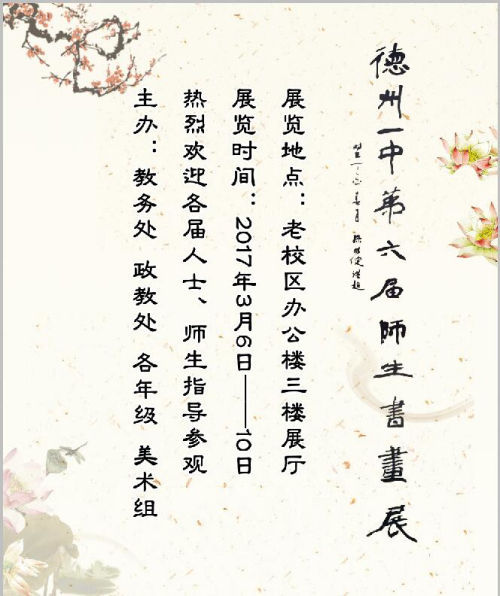 德州一中第六届師生書畫展
展览地点：老校区办公楼三楼展厅
展览时间：2017年3月6日——10日
热烈欢迎各届人士、师生指导参观
主办：教务处 政教处 各年级 美术组